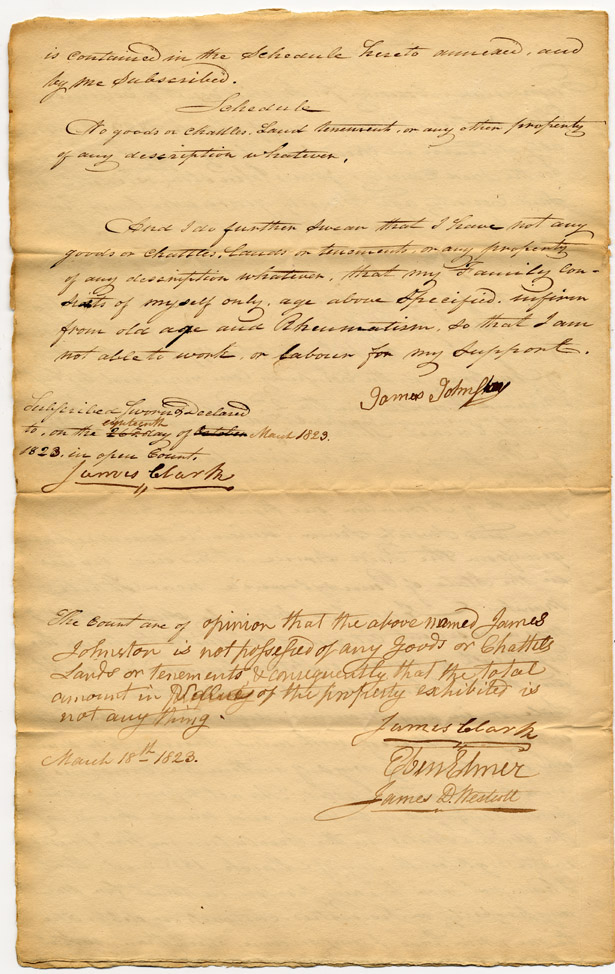 is contained in the Schedule hereto annexed, and
by me Subscribed.
Schedule
No goods or chattles, Land tenement, or any other property
of any description whatever.
And I do further Swear that I have not any
goods or Chattles, Lands or tenements, or any property
of any description whatever, that my Family Con-
sists of myself only, age above Specified, infirm
from old age and Rheumatism, so that I am
not able to work, or labour for my Support.
James Johnston
Subscribed Sworn & Declared
eighteenth
to, on the 26th day of October March 1823.
1823. in open Court.
James Clark
The Court are of opinion that the above named James
Johnston is not possessed of any Goods or Chattels
Lands or tenements, & consequently that the total
amount in of the property exhibited is
not any thing.
James Clark
March 18th 1823.
Eben Elmer
James D. Westcott